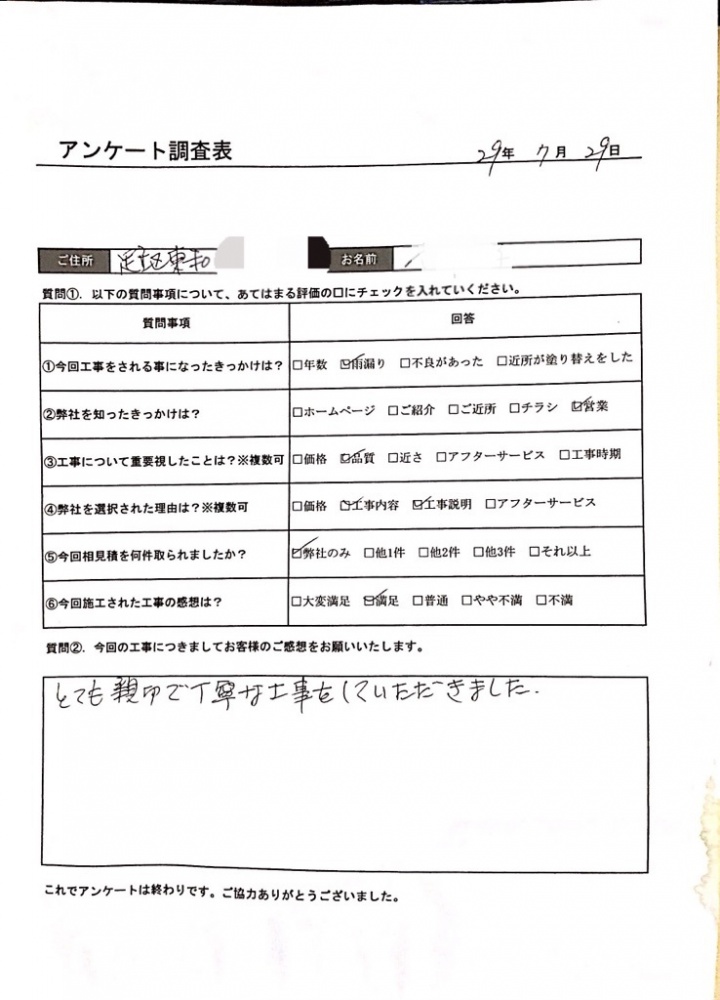 アンケート調査表
29年 7月 29日
ご住所 足立区東和 お名前
質問①. 以下の質問事項について、あてはまる評価の□にチェックを入れていください。
質問事項 回答
①今回工事をされる事になったきっかけは? □年数 ☑雨漏り □不良があった □近所が塗り替えをした
②弊社を知ったきっかけは? □ホームページ □ご紹介 □ご近所 □チラシ ☑営業
③工事について重要視したことは?※複数可 □価格 ☑品質 □近さ □アフターサービス □工事時期
④弊社を選択された理由は?※複数可 □価格 ☑工事内容 ☑工事説明 □アフターサービス
⑤今回相見積を何件取られましたか? ☑弊社のみ □他1件 □他2件 □他3件 □それ以上
⑥今回施工された工事の感想は? □大変満足 ☑満足 □普通 □やや不満 □不満
質問②. 今回の工事につきましてお客様のご感想をお願いいたします。
とても親切で丁寧な工事をしていただきました.
これでアンケートは終わりです。ご協力ありがとうございました。